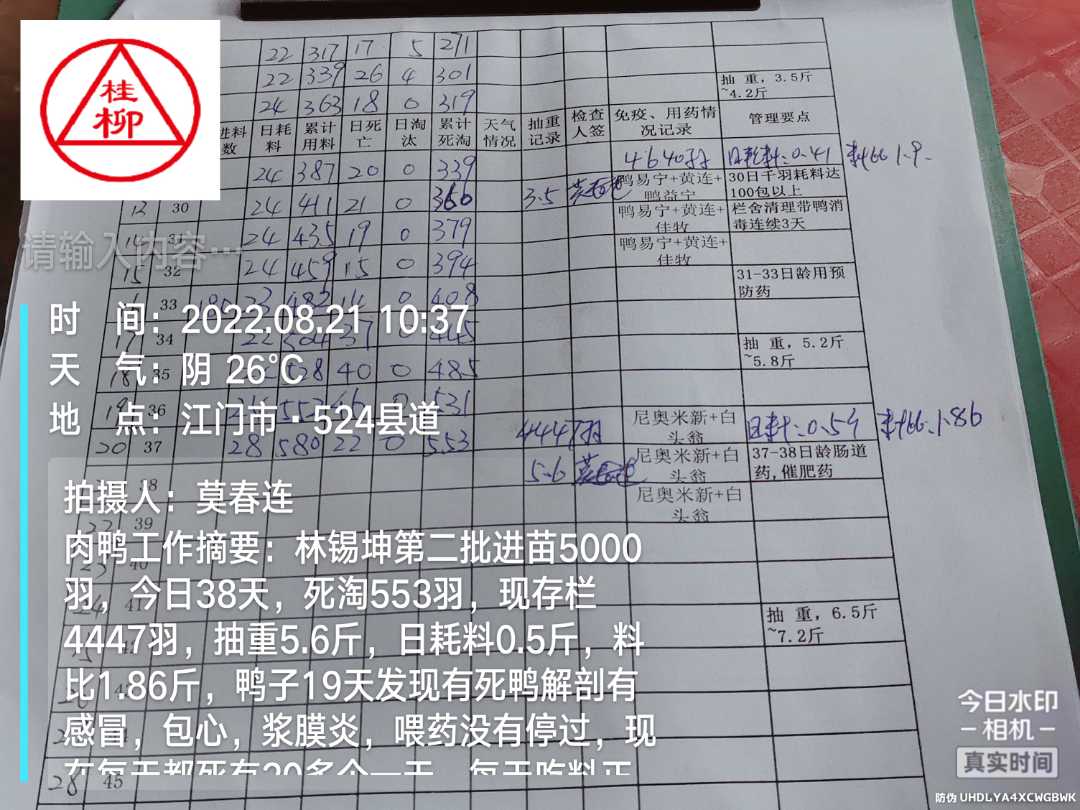 22 317 17 5 271
22 339 26 4 301 抽重，3.5斤~4.2斤
24 363 18 0 319
进料数 日耗料 累计用料 日死亡 日淘汰 累计死淘 天气情况 抽重记录 检查人签 免疫、用药情况记录 管理要点
24 387 20 0 339 4640羽 日耗料:0.41 料比 1.9
13 30 24 411 21 0 360 3.5 鸭易宁+黄连+鸭益宁 30日千羽耗料达100包以上
14 31 24 435 19 0 379 鸭易宁+黄连+佳牧 栏舍清理带鸭消毒连续3天
15 32 24 459 15 0 394 鸭易宁+黄连+佳牧
33 408 31-33日龄用预防药
17 34 37 445
18 35 40 0 485 抽重，5.2斤~5.8斤
19 36 531
20 37 28 580 22 0 553 4447羽 尼奥米新+白头翁 日耗:0.54 料比1.86
38 5.6 尼奥米新+白头翁 37-38日龄肠道药,催肥药
39 尼奥米新+白头翁
40
41 抽重，6.5斤~7.2斤
28 45
桂柳
请输入内容…
时 间：2022.08.21 10:37
天 气：阴 26℃
地 点：江门市·524县道
拍摄人：莫春连
肉鸭工作摘要：林锡坤第二批进苗5000
羽，今日38天，死淘553羽，现存栏
4447羽，抽重5.6斤，日耗料0.5斤，料
比1.86斤，鸭子19天发现有死鸭解剖有
感冒，包心，浆膜炎，喂药没有停过，现
在每天都死有20多个一天，每天吃料正
今日水印
-相机-
真实时间
防伪 UHDLYA4XCWGBWK